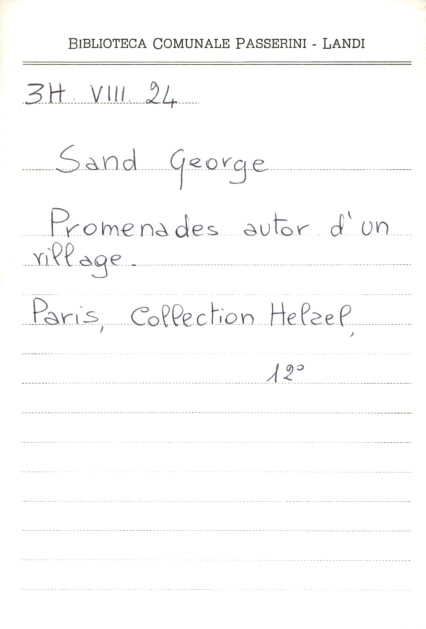 BIBLIOTECA COMUNALE PASSERINI - LANDI
3H VIII 24
Sand George
Promenades autor d'un
village.
Paris, Collection Helzel,
12°